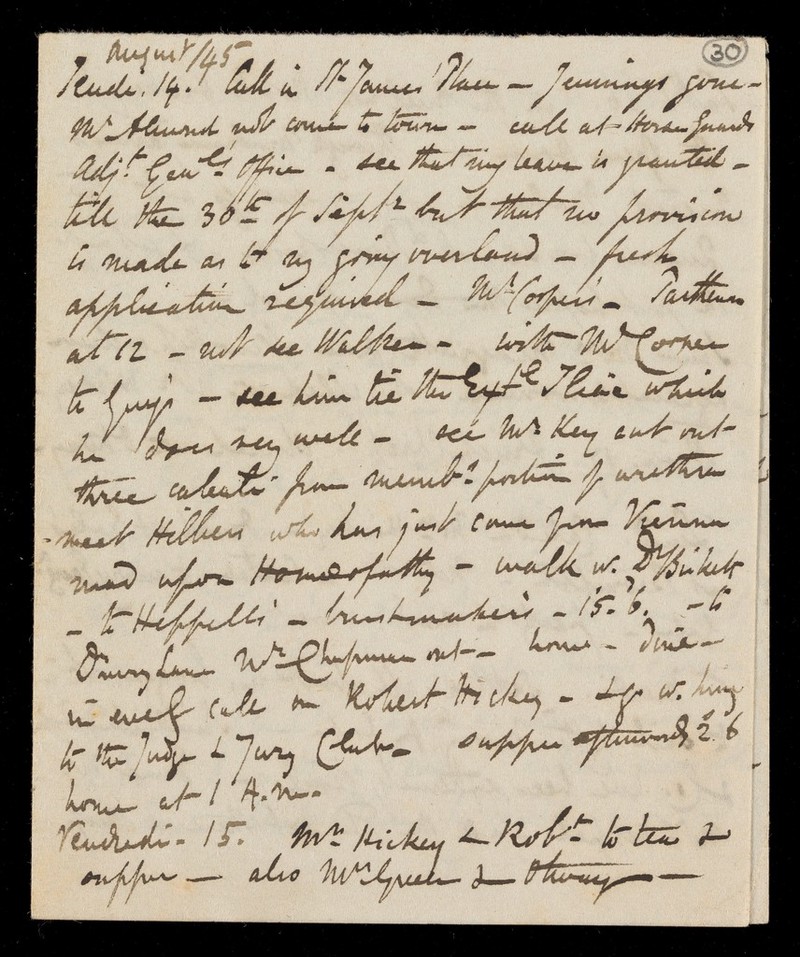 30
August/45
Jeudi. 14. Call in St James' Place – Jennings gone –
Mr not come to town – call at Horse Guards
Adjt. Genls. Office – see that my leave is granted –
till the 30th of Septr but that no provision
is made as to my going overland – fresh
application required – Mr Cooper's –
at 12 – not see Walker – with Mr Cooper
to Guy's – see him tie the Extl Iliac which
he does very well – see Mr Key cut out
three calculi from membs portion of urethra
– meet Hilbers who has just come from Vienna
mad upon Homœopathy – walk w. Dr Birkett
– to Heppell's – brushmaker's – 15.6. – to
Drury Lane Mr Chapman out – home – dine –
in eveg call on Robert Hickey – & go w. him
to the Judge & Jury Club – supper afterwards 2.6
home at 1 A.M.
Vendredi – 15. Mrs Hickey & Robt. to tea &
supper – also Mrs Green & –